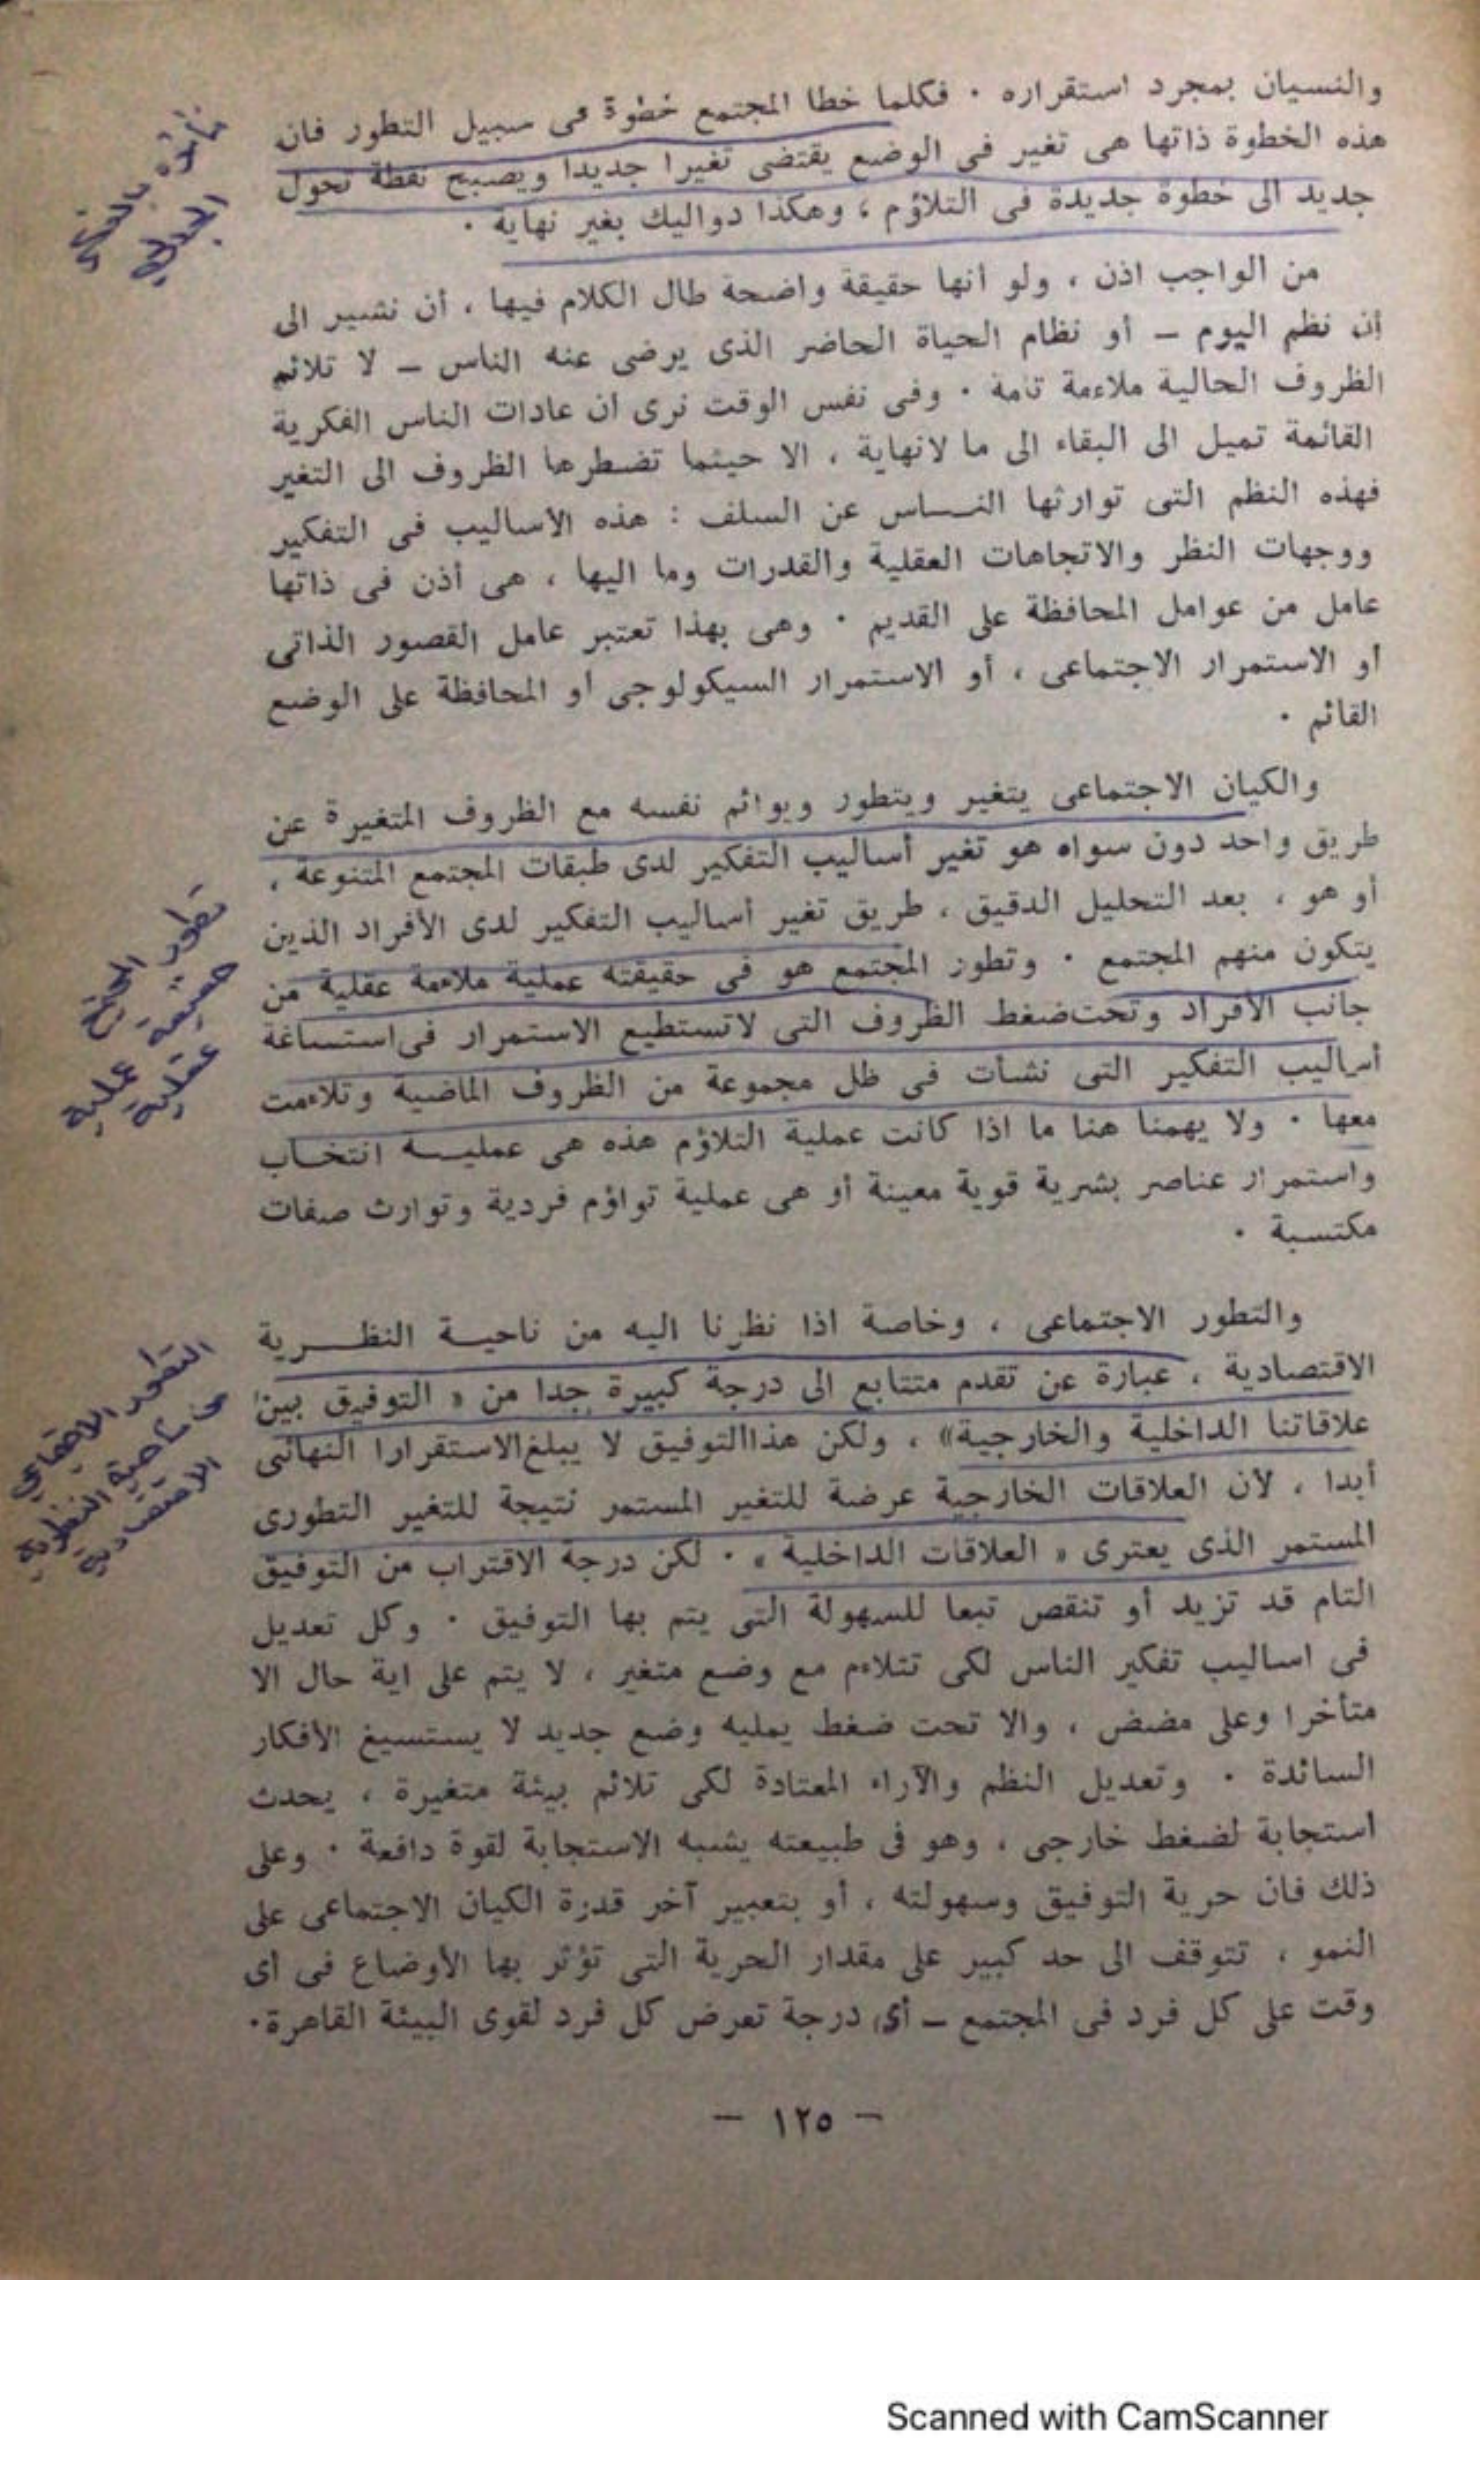 والنسيان بمجرد استقراره . فكلما خطا المجتمع خطوة فى سبيل التطور فان
هذه الخطوة ذاتها هى تغير فى الوضع يقتضى تغيرا جديدا ويصبح نقطة تحول
جديد الى خطوة جديدة فى التلاؤم ، وهكذا دواليك بغير نهاية .
من الواجب اذن ، ولو أنها حقيقة واضحة طال الكلام فيها ، أن نشير الى
أن نظم اليوم — أو نظام الحياة الحاضر الذى يرضى عنه الناس — لا تلائم
الظروف الحالية ملاءمة تامة . وفى نفس الوقت نرى ان عادات الناس الفكرية
القائمة تميل الى البقاء الى ما لانهاية ، الا حينما تضطرها الظروف الى التغير
فهذه النظم التى توارثها النــاس عن السلف : هذه الأساليب فى التفكير
ووجهات النظر والاتجاهات العقلية والقدرات وما اليها ، هى أذن فى ذاتها
عامل من عوامل المحافظة على القديم . وهى بهذا تعتبر عامل القصور الذاتى
أو الاستمرار الاجتماعى ، أو الاستمرار السيكولوجى أو المحافظة على الوضع
القائم .
والكيان الاجتماعى يتغير ويتطور ويوائم نفسه مع الظروف المتغيرة عن
طريق واحد دون سواه هو تغير أساليب التفكير لدى طبقات المجتمع المتنوعة ،
أو هو ، بعد التحليل الدقيق ، طريق تغير أساليب التفكير لدى الأفراد الذين
يتكون منهم المجتمع . وتطور المجتمع هو فى حقيقته عملية ملاءمة عقلية من
جانب الأفراد وتحت ضغط الظروف التى لاتستطيع الاستمرار فى استساغة
أساليب التفكير التى نشأت فى ظل مجموعة من الظروف الماضية وتلاءمت
معها . ولا يهمنا هنا ما اذا كانت عملية التلاؤم هذه هى عمليــة انتخــاب
واستمرار عناصر بشرية قوية معينة أو هى عملية تواؤم فردية وتوارث صفات
مكتسبة .
والتطور الاجتماعى ، وخاصة اذا نظرنا اليه من ناحيــة النظــرية
الاقتصادية ، عبارة عن تقدم متتابع الى درجة كبيرة جدا من « التوفيق بين
علاقاتنا الداخلية والخارجية» ، ولكن هذا التوفيق لا يبلغ الاستقرارا النهائى
أبدا ، لأن العلاقات الخارجية عرضة للتغير المستمر نتيجة للتغير التطورى
المستمر الذى يعترى « العلاقات الداخلية » . لكن درجة الاقتراب من التوفيق
التام قد تزيد أو تنقص تبعا للسهولة التى يتم بها التوفيق . وكل تعديل
فى اساليب تفكير الناس لكى تتلاءم مع وضع متغير ، لا يتم على اية حال الا
متأخرا وعلى مضض ، والا تحت ضغط يمليه وضع جديد لا يستسيغ الأفكار
السائدة . وتعديل النظم والآراء المعتادة لكى تلائم بيئة متغيرة ، يحدث
استجابة لضغط خارجى ، وهو فى طبيعته يشبه الاستجابة لقوة دافعة . وعلى
ذلك فان حرية التوفيق وسهولته ، أو بتعبير آخر قدرة الكيان الاجتماعى على
النمو ، تتوقف الى حد كبير على مقدار الحرية التى تؤثر بها الأوضاع فى أى
وقت على كل فرد فى المجتمع — أى درجة تعرض كل فرد لقوى البيئة القاهرة.
— ١٢٥ —
تطور المجتمع
عملية
عقلية
التطور الاجتماعي
من ناحية النظرية
الاقتصادية
Scanned with CamScanner